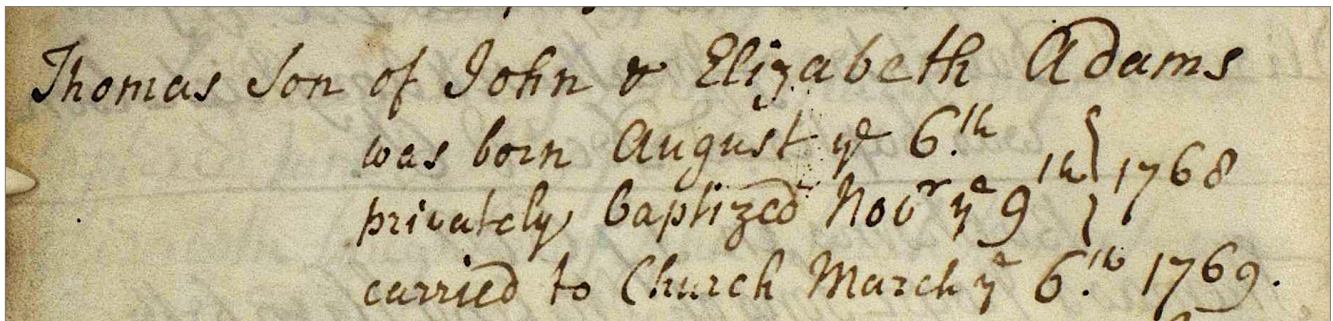 Thomas Son of John & Elizabeth Adams
was born August ye 6.th
privately baptized Novr ye 9th } 1768
carried to Church March ye 6.th 1769.